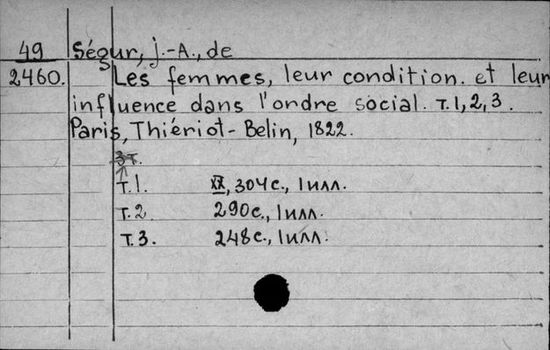 49 Ségur, J.-A., de
2460. Les femmes, leur condition. et leur
influence dans l'ordre social. т. 1, 2, 3.
Paris, Thiériot-Belin, 1822.
3т.
т.1. XX, 304 с., 1 илл.
т.2 290 с., 1 илл.
т.3. 248 с., 1 илл.